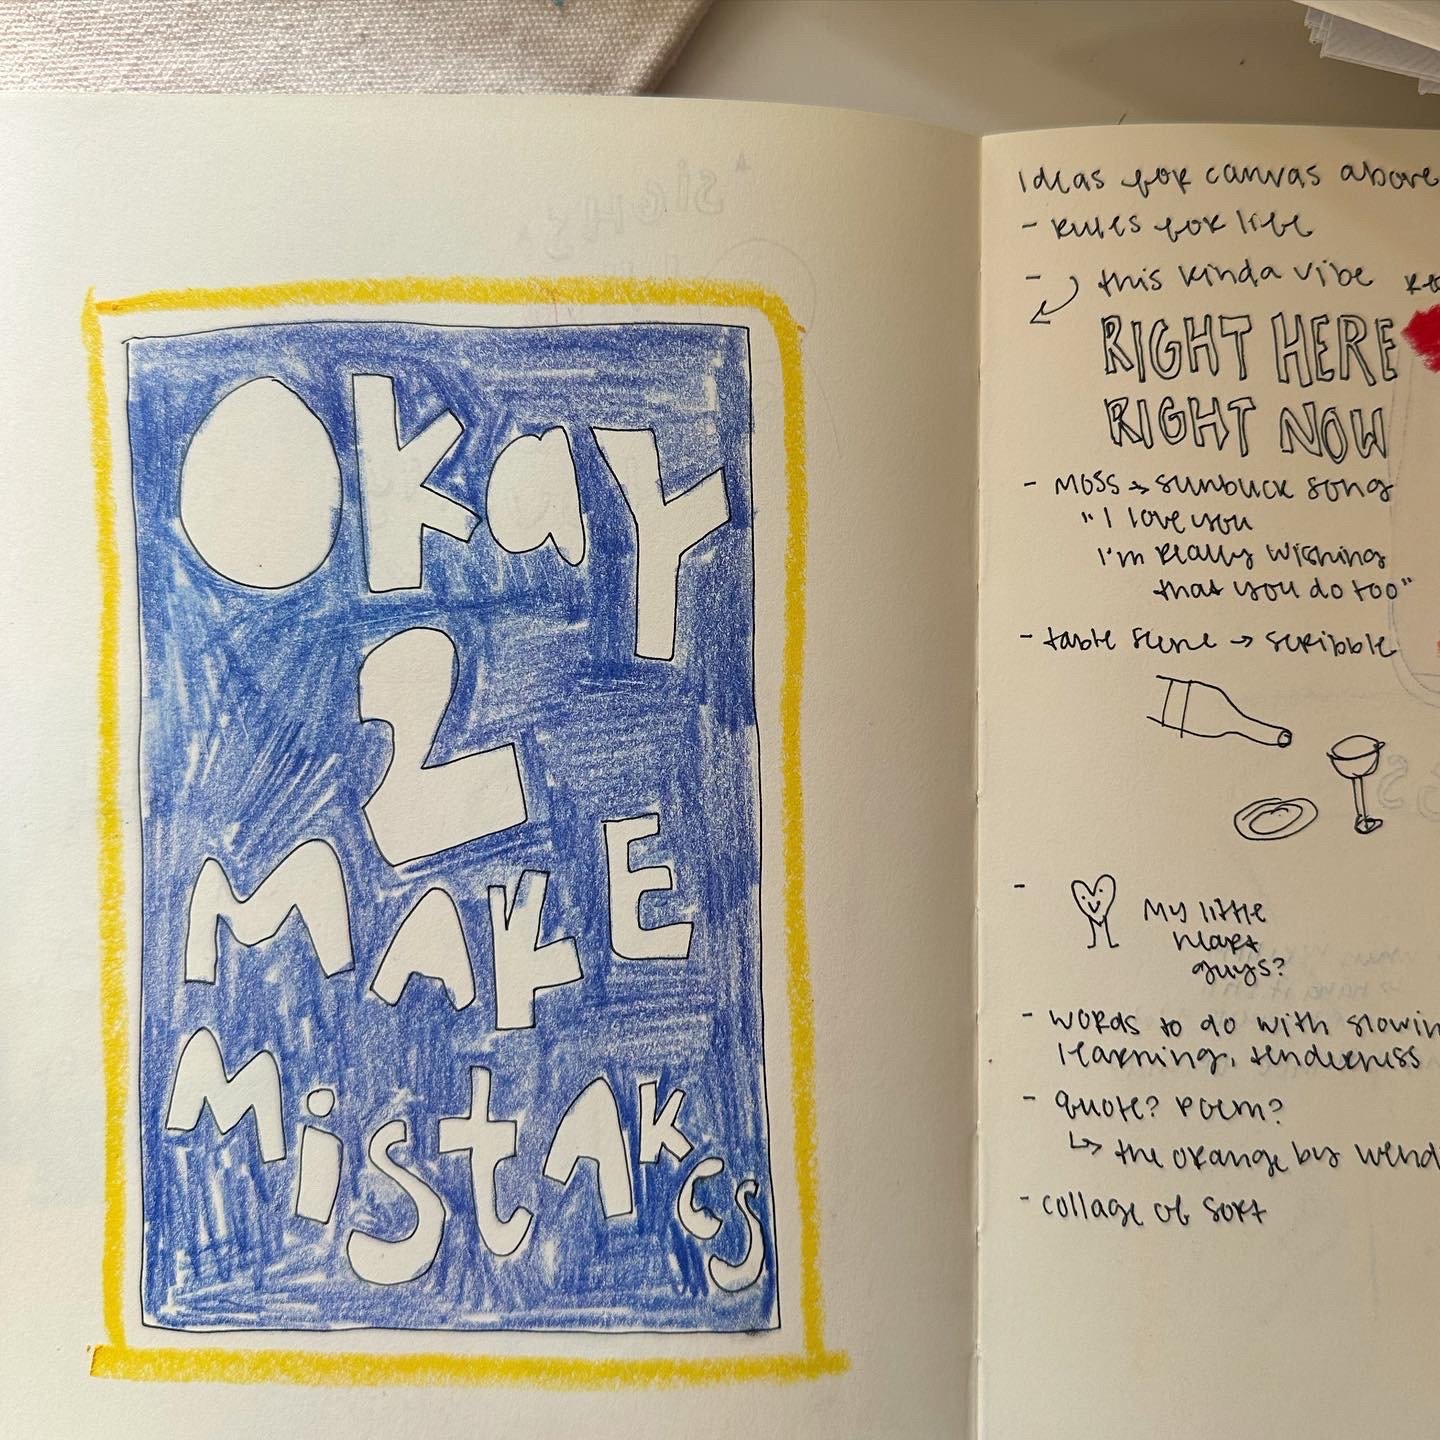 Okay
2
MAKE
MistAKes
Ideas for canvas above
- rules for life
- this kinda vibe
RIGHT HERE
RIGHT NOW
- MOSS → sunbuck song
"I love you
I'm really wishing
that you do too"
- table scene → scribble
- My little
heart
guys?
- words to do with slowin
learning, tenderness
- quote? poem?
↳ the orange by wend
- collage of sort